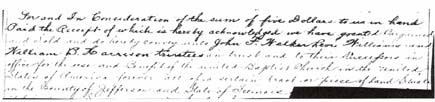 For and In Consideration of the sum of five Dollars to us in hand
Paid the Receipt of which is hereby acknowledged we have granted Bargained
and Sold and do hereby convey unto John F. Walker Levi Williams and
William B. Harrison Trustees in trust and to their Successors in
office for the use and Benefit of the United Baptist Church in the United
States of America forever all of a certain tract or piece of land Situate
in the County of Jefferson and State of